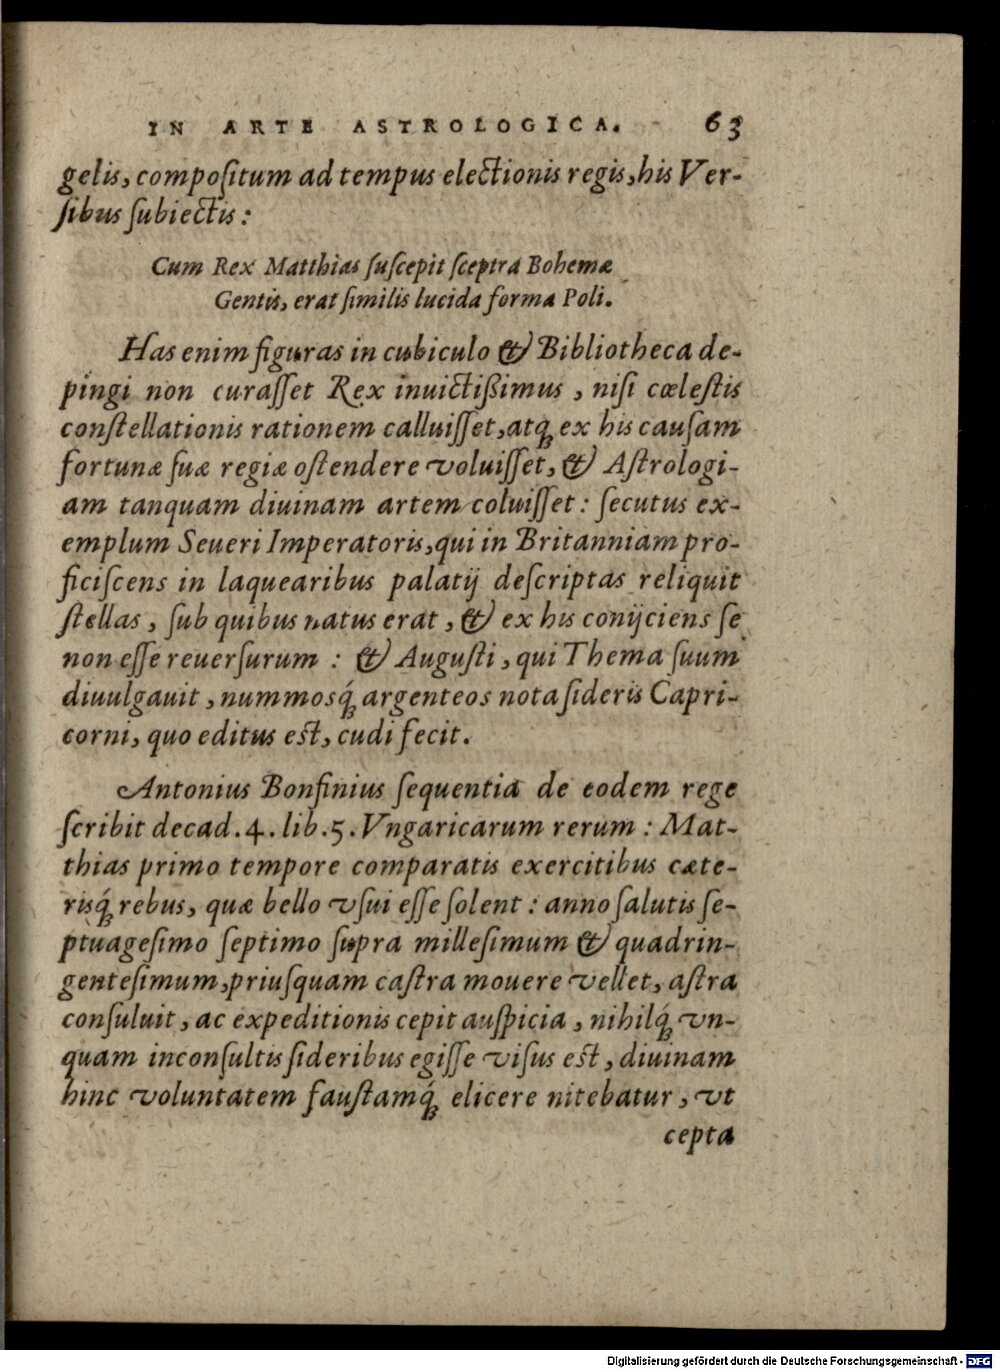 IN ARTE ASTROLOGICA. 63
gelis, compoſitum ad tempus electionis regis, his Ver-
ſibus ſubiectis:
Cum Rex Matthias ſuſcepit ſceptra Bohemæ
Gentis, erat ſimilis lucida forma Poli.
Has enim figuras in cubiculo & Bibliotheca de-
pingi non curaſſet Rex inuictiſsimus, niſi cœleſtis
conſtellationis rationem calluiſſet, atq́ꝫ ex his cauſam
fortunæ ſuæ regiæ oſtendere voluiſſet, & Aſtrologi-
am tanquam diuinam artem coluiſſet: ſecutus ex-
emplum Seueri Imperatoris, qui in Britanniam pro-
ficiſcens in laquearibus palatij deſcriptas reliquit
ſtellas, ſub quibus natus erat, & ex his conijciens ſe
non eſſe reuerſurum: & Auguſti, qui Thema ſuum
diuulgauit, nummosq́ꝫ argenteos nota ſideris Capri-
corni, quo editus eſt, cudi fecit.
Antonius Bonfinius ſequentia de eodem rege
ſcribit decad. 4. lib. 5. Vngaricarum rerum: Mat-
thias primo tempore comparatis exercitibus cæte-
risq́ꝫ rebus, quæ bello vſui eſſe ſolent: anno ſalutis ſe-
ptuageſimo ſeptimo ſupra milleſimum & quadrin-
genteſimum, priuſquam caſtra mouere vellet, aſtra
conſuluit, ac expeditionis cepit auſpicia, nihilq́ꝫ vn-
quam inconſultis ſideribus egiſſe viſus eſt, diuinam
hinc voluntatem fauſtamq́ꝫ elicere nitebatur, vt
cepta
Digitalisierung gefördert durch die Deutsche Forschungsgemeinschaft - DFG